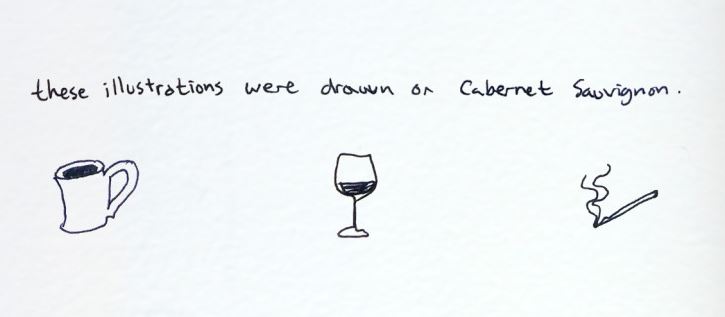 these illustrations were drawn on Cabernet Sauvignon.